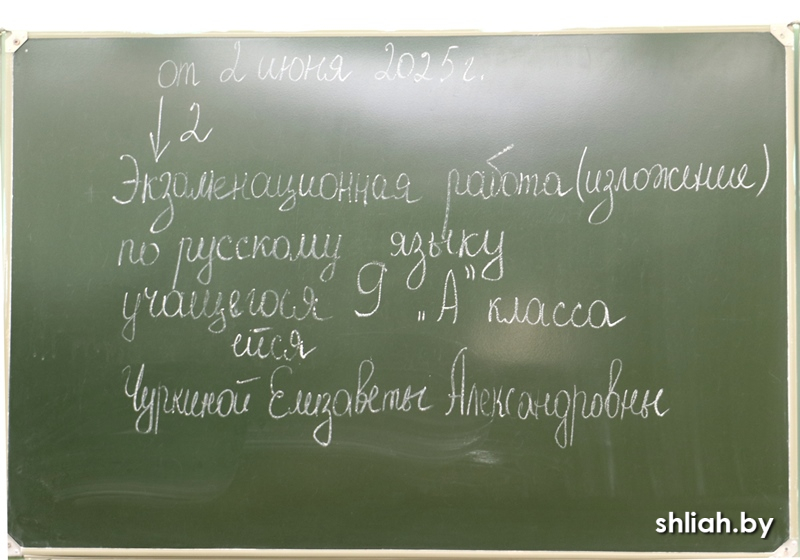 от 2 июня 2025 г.
↓ 2
Экзаменационная работа (изложение)
по русскому языку
учащегося 9 „А" класса
ейся
Чуркиной Елизаветы Александровны
shliah.by